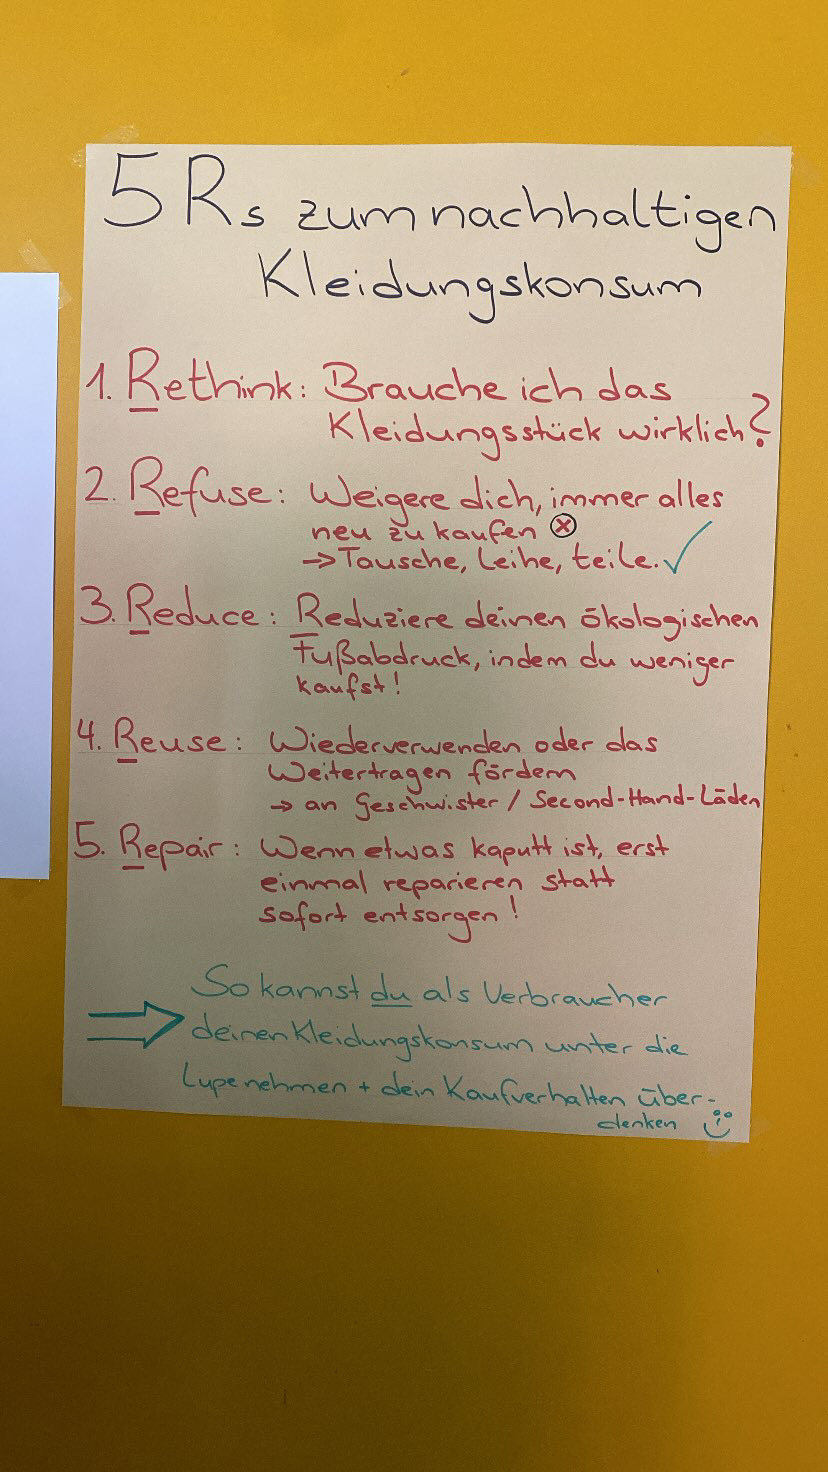 5 Rs zum nachhaltigen
Kleidungskonsum
1. Rethink: Brauche ich das
Kleidungsstück wirklich?
2. Refuse: Weigere dich, immer alles
neu zu kaufen ⓧ
→ Tausche, leihe, teile. ✓
3. Reduce: Reduziere deinen ökologischen
Fußabdruck, indem du weniger
kaufst!
4. Reuse: Wiederverwenden oder das
Weitertragen fördern
→ an Geschwister / Second-Hand-Läden
5. Repair: Wenn etwas kaputt ist, erst
einmal reparieren statt
sofort entsorgen!
⇒ So kannst du als Verbraucher
deinen Kleidungskonsum unter die
Lupe nehmen + dein Kaufverhalten über-
denken